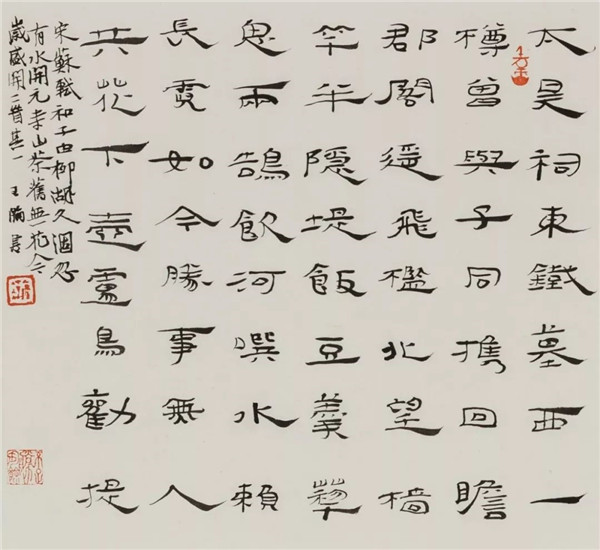 太昊祠東鐵墓西一
樽曾與子同携回瞻
郡閣遥飛檻北望檣
竿半隱堤飯豆羹藜
思兩鵠飲河噀水賴
長霓如今勝事無人
共花下壺盧鳥勸提
宋蘇軾和子由柳湖久涸忽
有水開元寺山茶舊無花今
歲盛開二首其一 王書